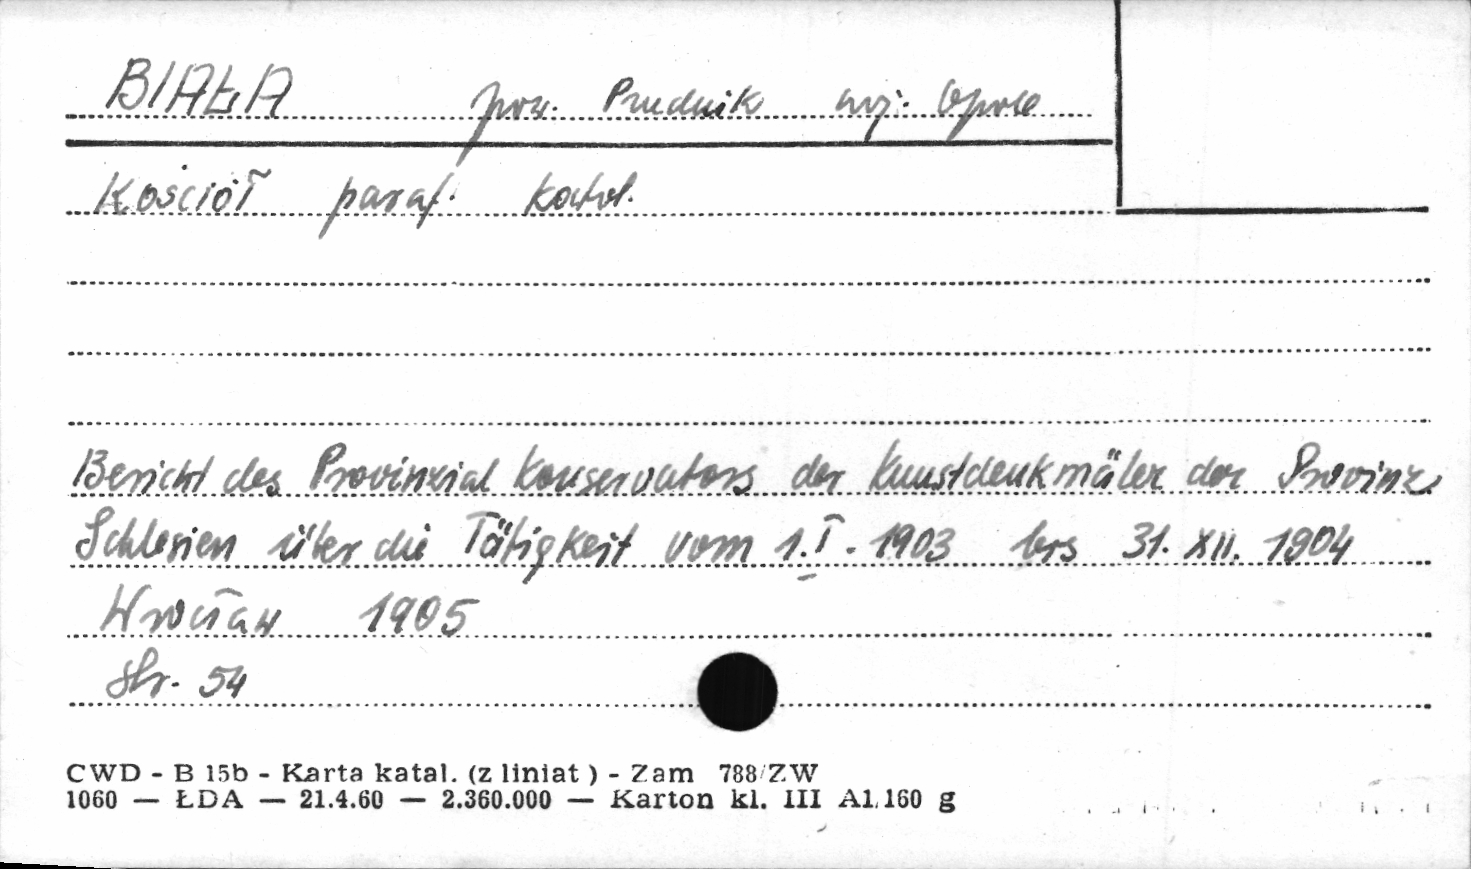 BIAŁA pow. Prudnik woj. Opole
Kościół paraf. katol.
Bericht des Provinzial Konservators der Kunstdenkmäler der Provinz
Schlesien über die Tätigkeit vom 1.I. 1903 bis 31. XII. 1904
Wrocław 1905
Str. 54
CWD - B 15b - Karta katal. (z liniat) - Zam 788/ZW
1060 — ŁDA — 21.4.60 — 2.360.000 — Karton kl. III A1.160 g